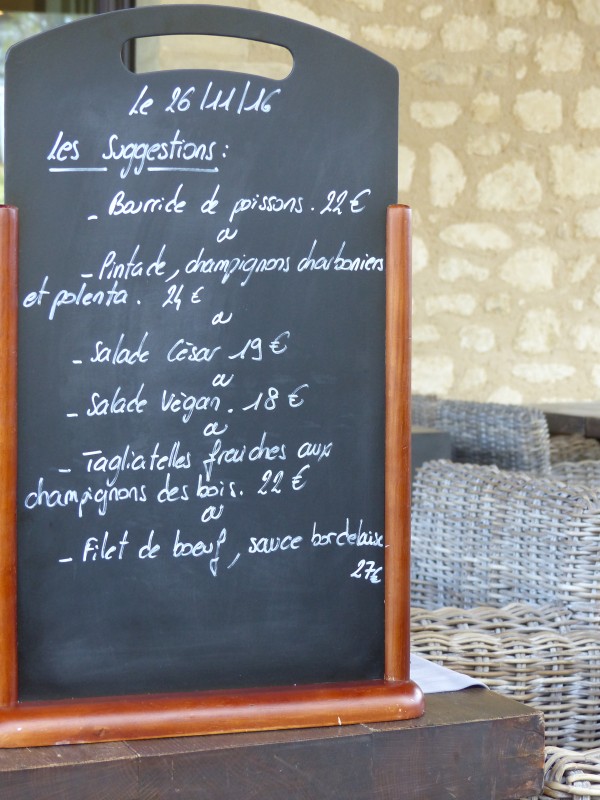 Le 26/11/16
Les Suggestions :
- Bourride de poissons. 22 €
ou
- Pintade, champignons charboniers
et polenta. 24 €
ou
- Salade César 19 €
ou
- Salade Végan. 18 €
ou
- Tagliatelles fraîches aux
champignons des bois. 22 €
ou
- Filet de boeuf, sauce bordelaise.
27€